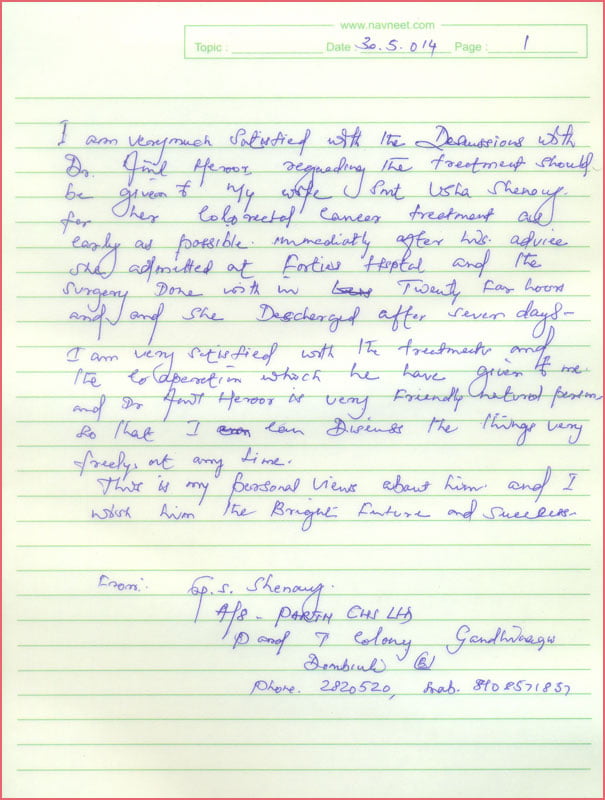 www.navneet.com
Topic : Date : 30.5.014 Page : 1
I am very much Satisfied with the Descussions with
Dr. Anil Heroor regarding the treatment should
be given to My wife Smt Usha Shenoy
for her Colorectal Cancer treatment as
early as possible. immediatly after his advice
she admitted at Fortis Hsptal and the
Surgery Done with in Twenty Four hours
and, and She Descharged after seven days-
I am very satisfied with the treatments and
the cooperation which he have given to me.
and Dr Anil Heroor is very Friendly natured person
So that I can Discuss the things very
freely, at any time.
This is my personal views about him. and I
wish him the Bright Future and success.
From: G. S. Shenoy.
A/8 - PARTH CHS Ltd
P and T Colony Gandhinagar
Dombivli (E)
Phone. 2820520, Mob. 8108571857